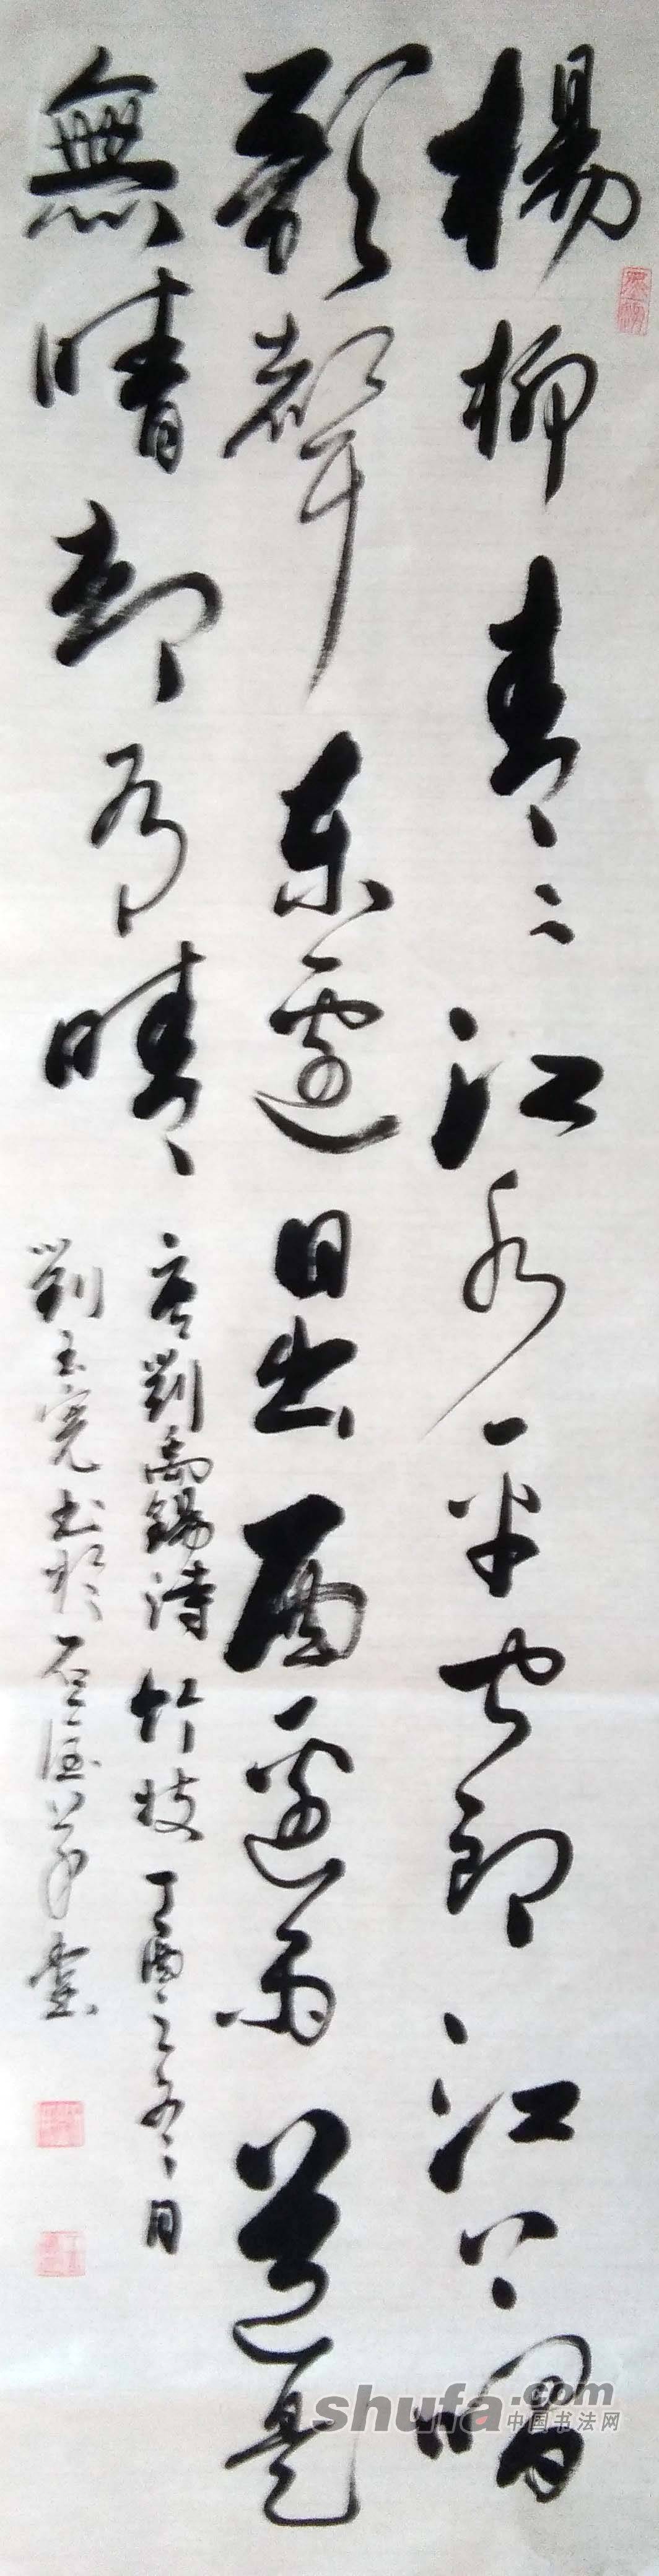 楊柳青〻江水平聞郎江上唱
歌聲东邊日出西邊雨道是
無晴却有晴
唐劉禹錫詩竹枝丁酉之冬月
劉玉寬书於草堂
shufa.com
中国书法网